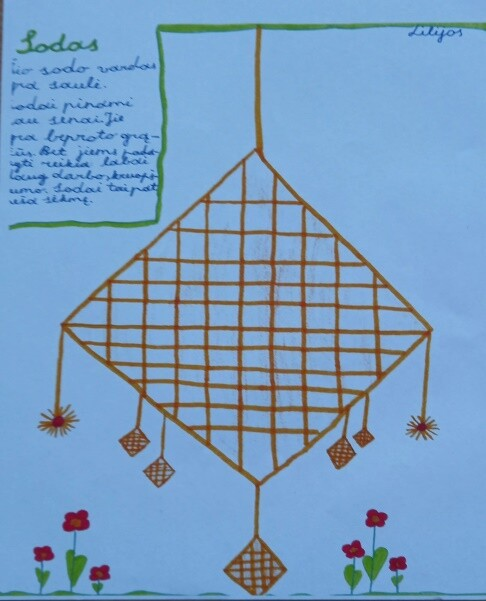 Sodas
Lilijos
io sodo vardas
yra saulė.
odai pinami
au senai. Jie
yra beproto gra-
žūs. Bet jiems pada-
ryti reikia labai
daug darbo, kruopš-
umo. Sodai taip pat
neša sėkmę.